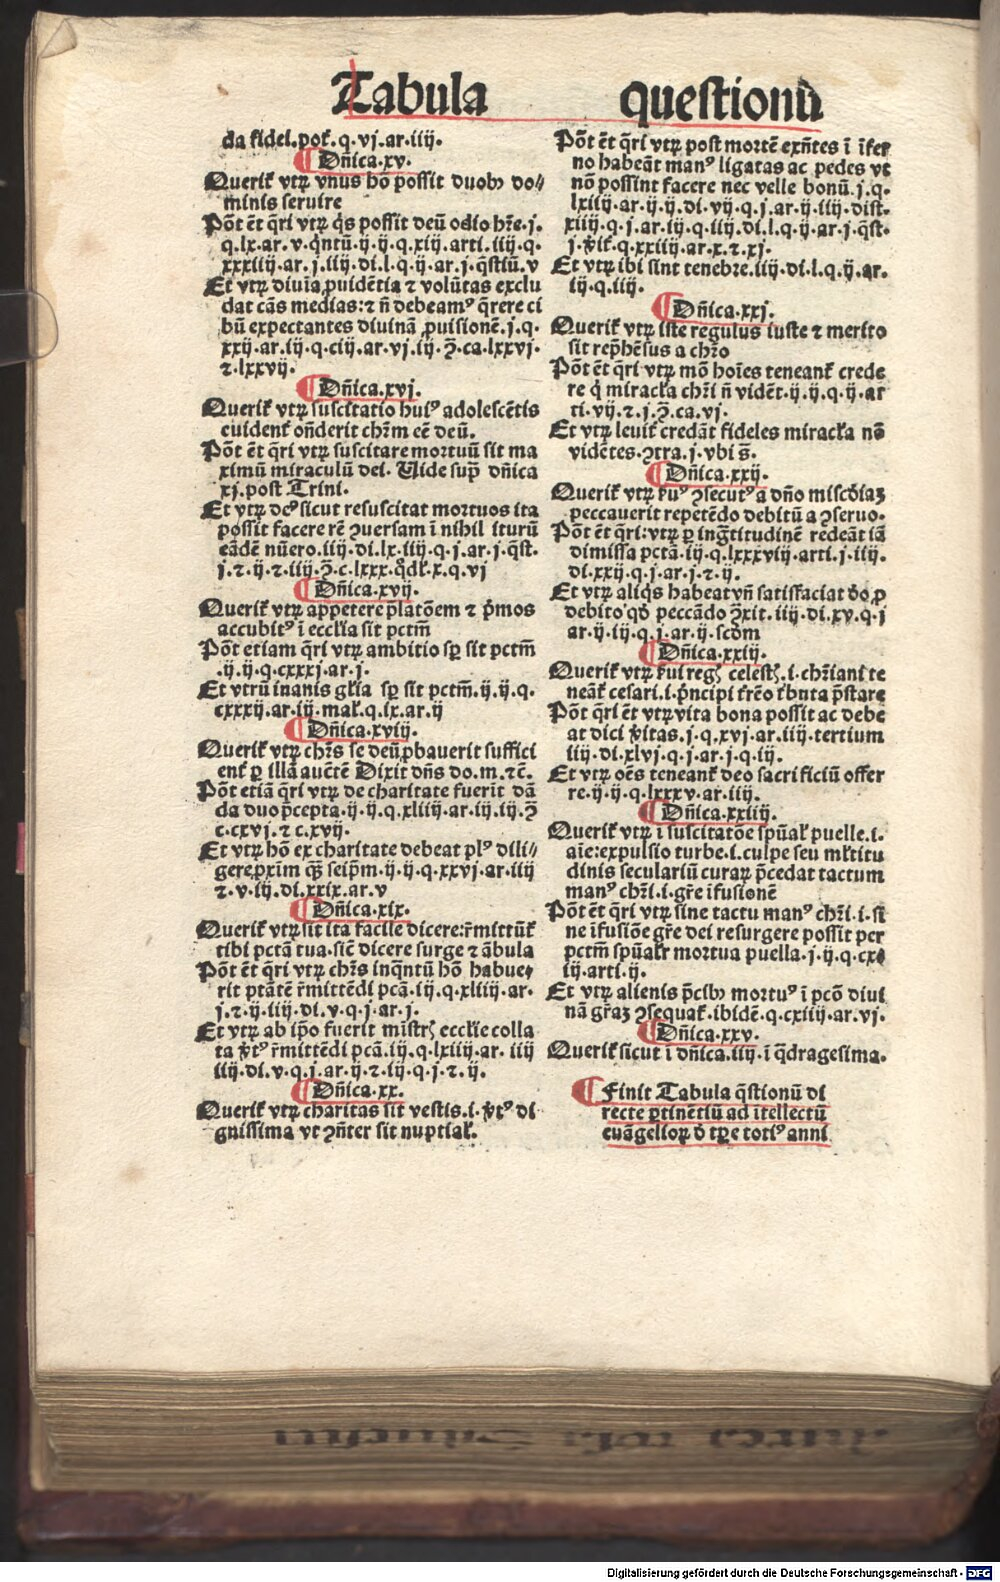 Tabula questionū
da fidei.pot̄.q.vj.ar.iiij.
¶ Dñica.xv.
Querit̄ vtꝝ vnus hō possit duobꝰ do⸗
minis seruire
Pōt ēt q̄ri vtꝝ q̇s possit deū odio hr̄e.j.
q.lx.ar.v.q̇ntū.ij.ij.q.xiij.arti.iiij.q.
xxxiiij.ar.j.iiij.di.l.q.ij.ar.j.q̄stiū.v
Et vtꝝ diuīa ꝓuidētia ⁊ volūtas exclu
dat cās medias:⁊ ñ debeamꝰ q̄rere ci
bū expectantes diuinā ꝓuisionē.j.q.
xxij.ar.iij.q.ciij.ar.vj.iij.ꝯ̄.ca.lxxvj.
⁊.lxxvij.
¶ Dñica.xvj.
Querit̄ vtꝝ suscitatio huiꝰ adolescētis
euident̄ oñderit chr̄m eē deū.
Pōt ēt q̄ri vtꝝ suscitare mortuū sit ma
ximū miraculū dei. Uide sup̄ dñica
xj.post Trini.
Et vtꝝ deꝰ sicut resuscitat mortuos ita
possit facere rē ꝯuersam ī nihil iturū
eādē nūero.iiij.di.lx.iiij.q.j.ar.j.q̄st.
j.⁊.ij.⁊.iiij.ꝯ̄.c.lxxx.q̊dl̄.x.q.vj
¶ Dñica.xvij.
Querit̄ vtꝝ appetere p̄latōem ⁊ p̄mos
accubitꝰ ī eccl̄ia sit pctm̄
Pōt etiam q̄ri vtꝝ ambitio sꝑ sit pctm̄
.ij.ij.q.cxxxj.ar.j.
Et vtrū inanis gl̄ia sꝑ sit pctm̄.ij.ij.q.
cxxxij.ar.iij.mal̄.q.ix.ar.ij
¶ Dñica.xviij.
Querit̄ vtꝝ chr̄s se deū ꝓbauerit suffici
ent̄ ꝑ illā auctē Dixit dñs do.m.⁊c̄.
Pōt etiā q̄ri vtꝝ de charitate fuerit dā
da duo p̄cepta.ij.ij.q.xliiij.ar.ij.iij.ꝯ̄
c.cxvj.⁊ c.xvij.
Et vtꝝ hō ex charitate debeat plꝰ dili⸗
gere ꝓxim̄ qꝫ̄ seip̄m.ij.ij.q.xxvj.ar.iiij
⁊.v.iij.di.xxix.ar.v
¶ Dñica.xix.
Querit̄ vtꝝ sit ita facile dicere:r̄mittūt̄
tibi pctā tua.sic̄ dicere surge ⁊ ābula
Pōt ēt q̄ri vtꝝ chr̄s inq̄ntū hō habue⸗
rit ptātē r̄mittēdi pcā.iij.q.xliiij.ar.
j.⁊.ij.iiij.di.v.q.j.ar.j.
Et vtꝝ ab ip̄o fuerit mīstrꝭ ecclīe colla
ta v̄tꝰ r̄mittēdi pcā.iij.q.lxiiij.ar. iiij
iiij.di.v.q.j.ar.ij.⁊.iij.q.j.⁊.ij.
¶ Dñica.xx.
Querit̄ vtꝝ charitas sit vestis.i.v̄tꝰ di
gnissima vt ꝯñter sit nuptial̄.
Pōt ēt q̄ri vtꝝ post mortē exñtes ī īfer
no habeāt manꝰ ligatas ac pedes vt
nō possint facere nec velle bonū.j.q.
lxiiij.ar.ij.ij.di.vij.q.j.ar.ij.iiij dist.
xiiij.q.j.ar.iij.q.iij.di.l.q.ij.ar.j.q̄st.
j.v̄it̄.q.xxiiij.ar.x.⁊.xj.
Et vtꝝ ibi sint tenebre.iiij.di.l.q.ij.ar.
iij.q.iij.
¶ Dñica.xxj.
Querit̄ vtꝝ iste regulus iuste ⁊ merito
sit rep̄hēsus a chr̄o
Pōt ēt q̄ri vtꝝ mō hoīes teneant̄ crede
re q̇ miracl̄a chr̄i ñ vidēt.ij.ij.q.ij.ar
ti.vij.⁊.j.ꝯ̄.ca.vj.
Et vtꝝ leuit̄ credāt fideles miracl̄a nō
vidētes.ꝯtra.j.vbi s̄.
¶ Dñica.xxij.
Querit̄ vtꝝ ẜuꝰ ꝯsecutꝰ a dño miscḋiaꝫ
peccauerit repetēdo debitū a ꝯseruo.
Pōt ēt q̄ri.vtꝝ ꝑ ingr̄titudinē redeāt iā
dimissa pctā.iij.q.lxxxviij.arti.j.iiij.
di.xxij.q.j.ar.j.⁊.ij.
Et vtꝝ aliq̇s habeat vñ satisfaciat ḋo ꝓ
debito qḋ peccādo ꝯ̄xit.iiij.di.xv.q.j
ar.ij.iij.q.j.ar.ij.scḋm
¶ Dñica.xxiij.
Querit̄ vtꝝ ẜui regꝭ celestꝭ.i.chr̄iani te
neāt̄ cesari.i.p̄ncipi tr̄eō tr̄buta p̄stare
Pōt q̄ri ēt vtꝝ vita bona possit ac debe
at dici v̄itas.j.q.xvj.ar.iiij.tertium
iiij.di.xlvj.q.j.ar.j.q.iij.
Et vtꝝ oēs teneant̄ deo sacrificiū offer
re.ij.ij.q.lxxxv.ar.iiij.
¶ Dñica.xxiiij.
Querit̄ vtꝝ ī suscitatōe spūal̄ puelle.i.
aīe:expulsio turbe.i.culpe seu ml̄titu
dinis seculariū curaꝝ p̄cedat tactum
manꝰ chr̄i.i.gr̄e īfusionē
Pōt ēt q̄ri vtꝝ sine tactu manꝰ chr̄i.i.si
ne īfusiōe gr̄e dei resurgere possit per
pctm̄ spūal̄r mortua puella.j.ij.q.cx⸗
iij.arti.ij.
Et vtꝝ alienis p̄cibꝰ mortuꝰ ī pcō diui
nā gr̄aꝫ ꝯsequat̄.ibidē.q.cxiiij.ar.vj.
¶ Dñica.xxv.
Querit̄ sicut ī dñica.iiij.ī q̄dragesima.
¶ Finit Tabula q̄stionū di
recte ꝑtinētiū ad ītellectū
euāgelioꝝ ḋ tꝑe totiꝰ anni
Digitalisierung gefördert durch die Deutsche Forschungsgemeinschaft - DFG